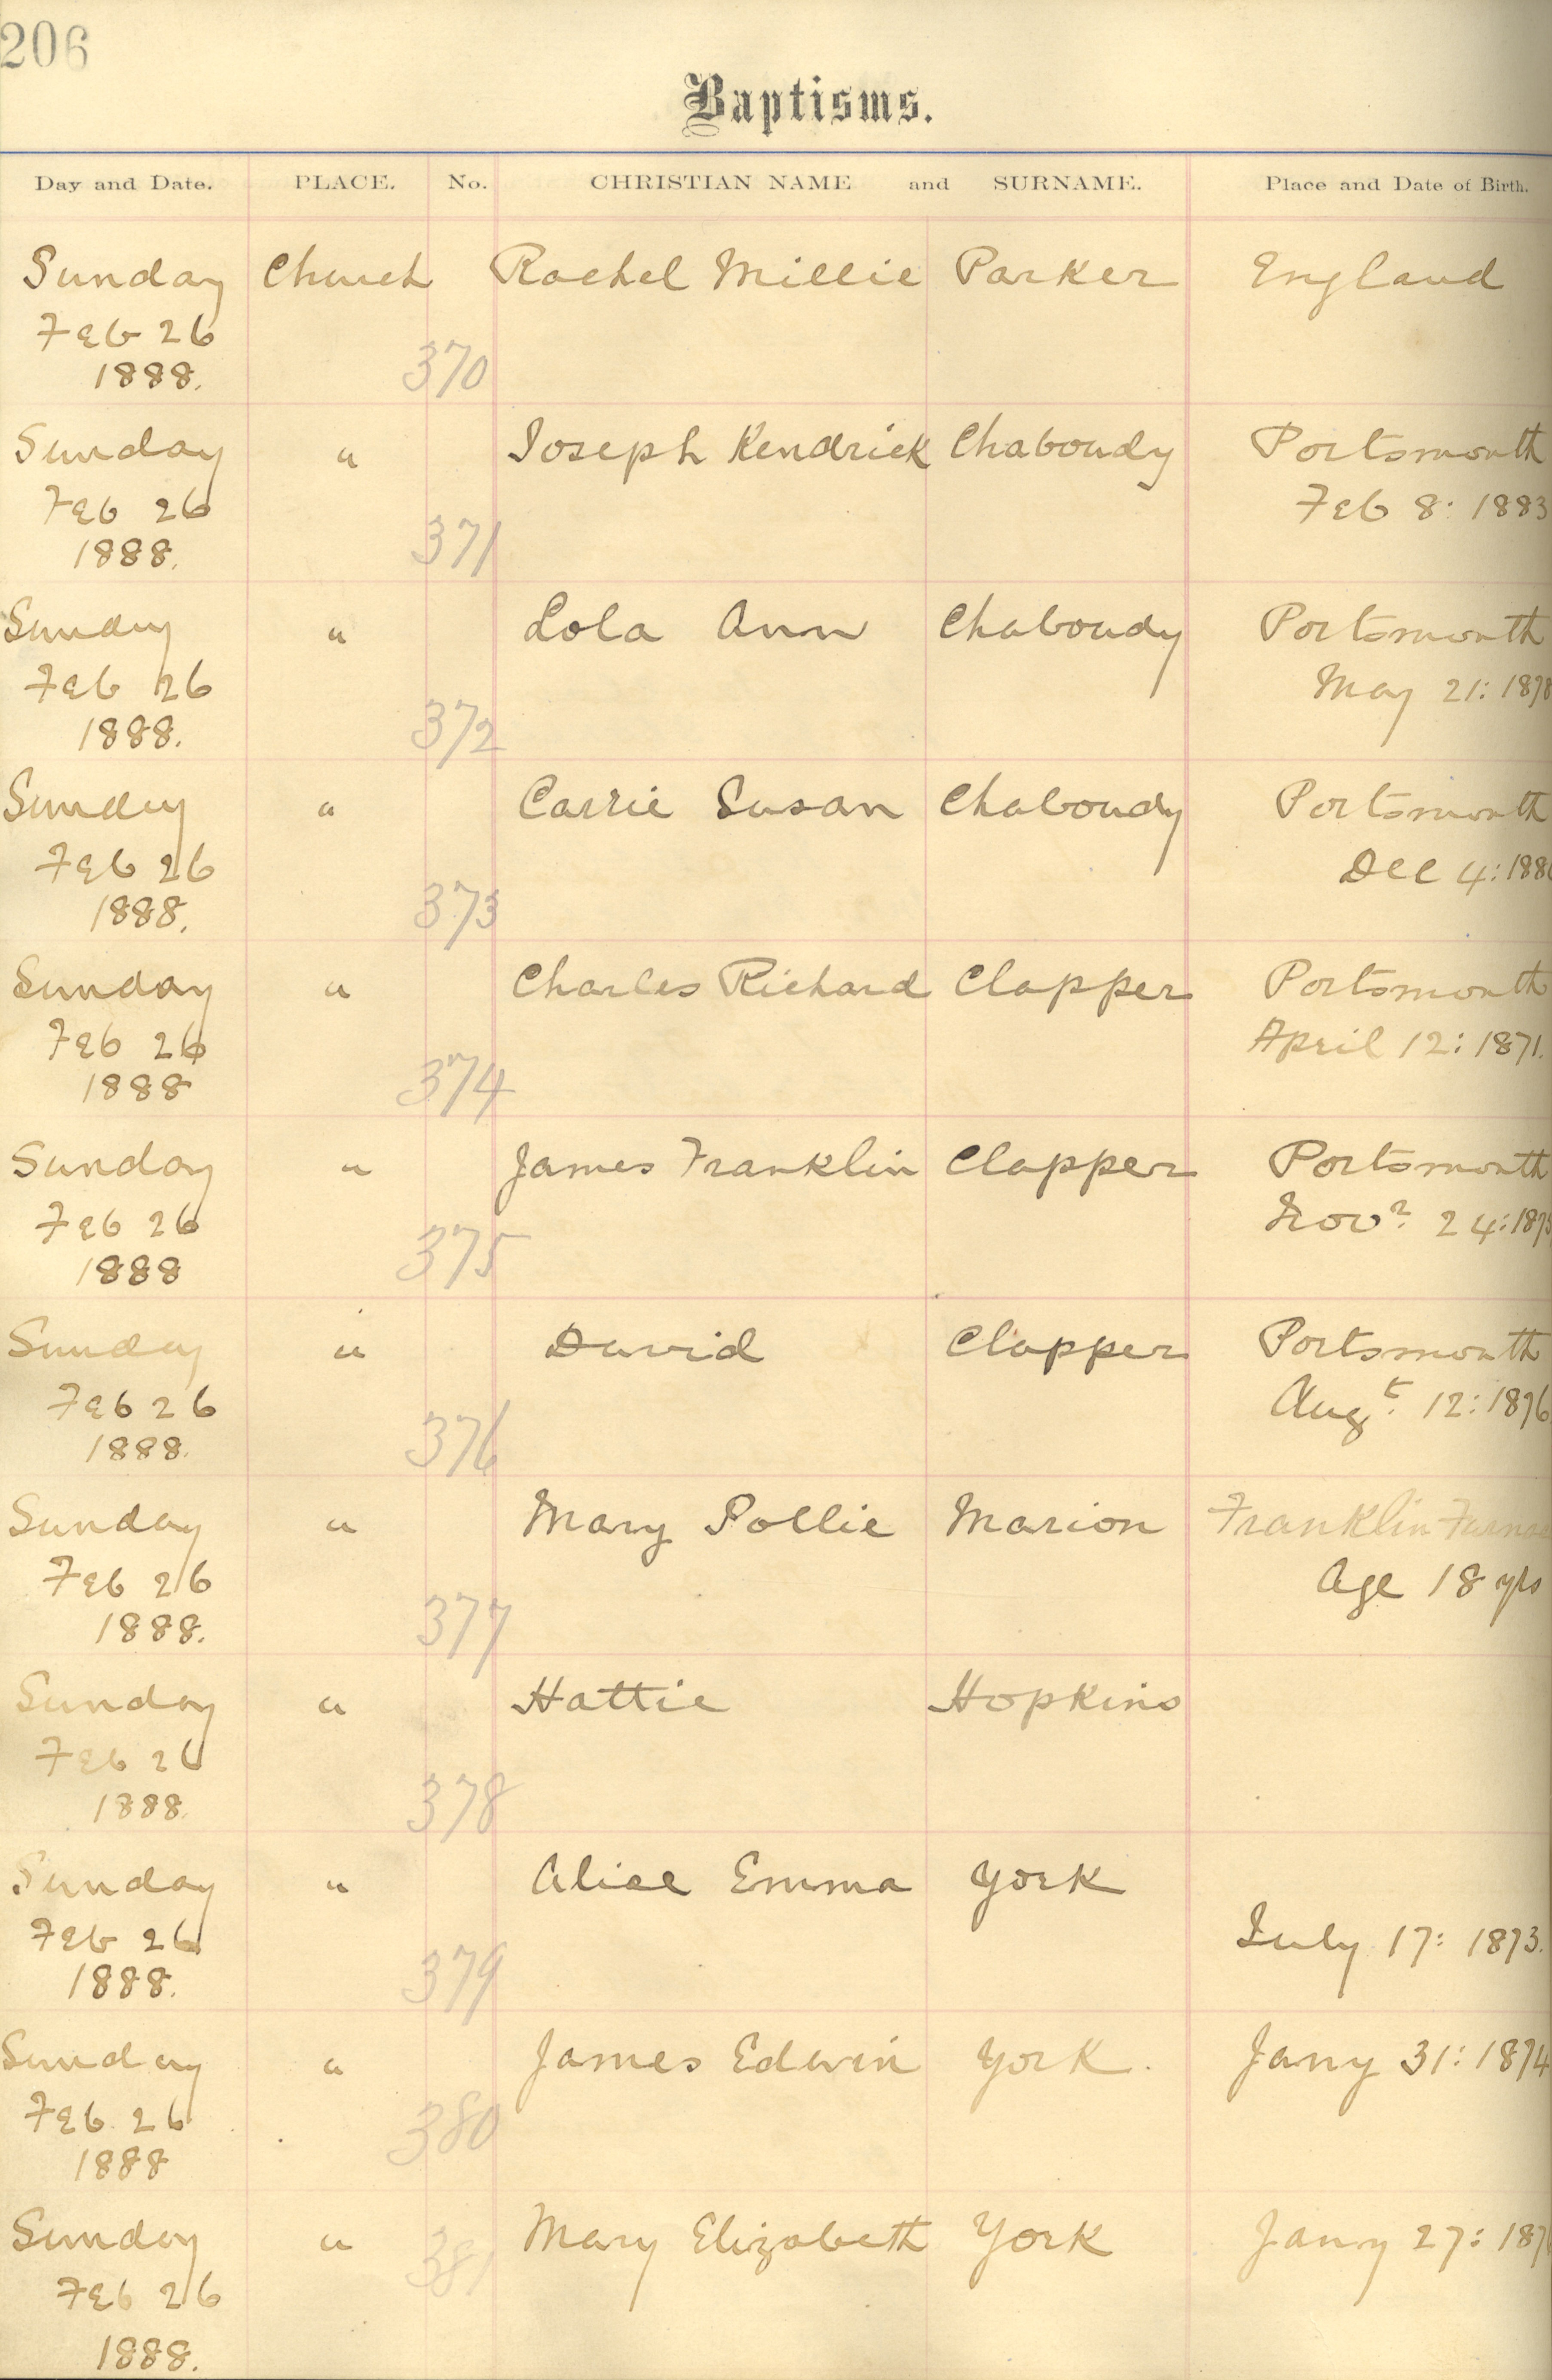 206
Baptisms.
Day and Date. PLACE. No. CHRISTIAN NAME and SURNAME. Place and Date of Birth.
Sunday Church Rachel Millie Parker England
Feb 26
1888. 370
Sunday " Joseph Kendrick Chaboudy Portsmouth
Feb 26 Feb 8: 1883
1888. 371
Sunday " Lola Ann Chaboudy Portsmouth
Feb 26 May 21: 1878
1888. 372
Sunday " Carrie Susan Chaboudy Portsmouth
Feb 26 Dec 4:
1888. 373
Sunday " Charles Richard Clapper Portsmouth
Feb 26 April 12: 1871.
1888 374
Sunday " James Franklin Clapper Portsmouth
Feb 26 Novr. 24:
1888 375
Sunday " David Clapper Portsmouth
Feb 26 Augt. 12: 1876
1888. 376
Sunday " Mary Pollie Marion Franklin
Feb 26 Age 18 yrs
1888. 377
Sunday " Hattie Hopkins
Feb 26
1888. 378
Sunday " Alice Emma York
Feb 26 July 17: 1873.
1888. 379
Sunday " James Edwin York. Jany 31: 1874
Feb 26
1888 380
Sunday " Mary Elizabeth York Jany 27:
Feb 26 381
1888.